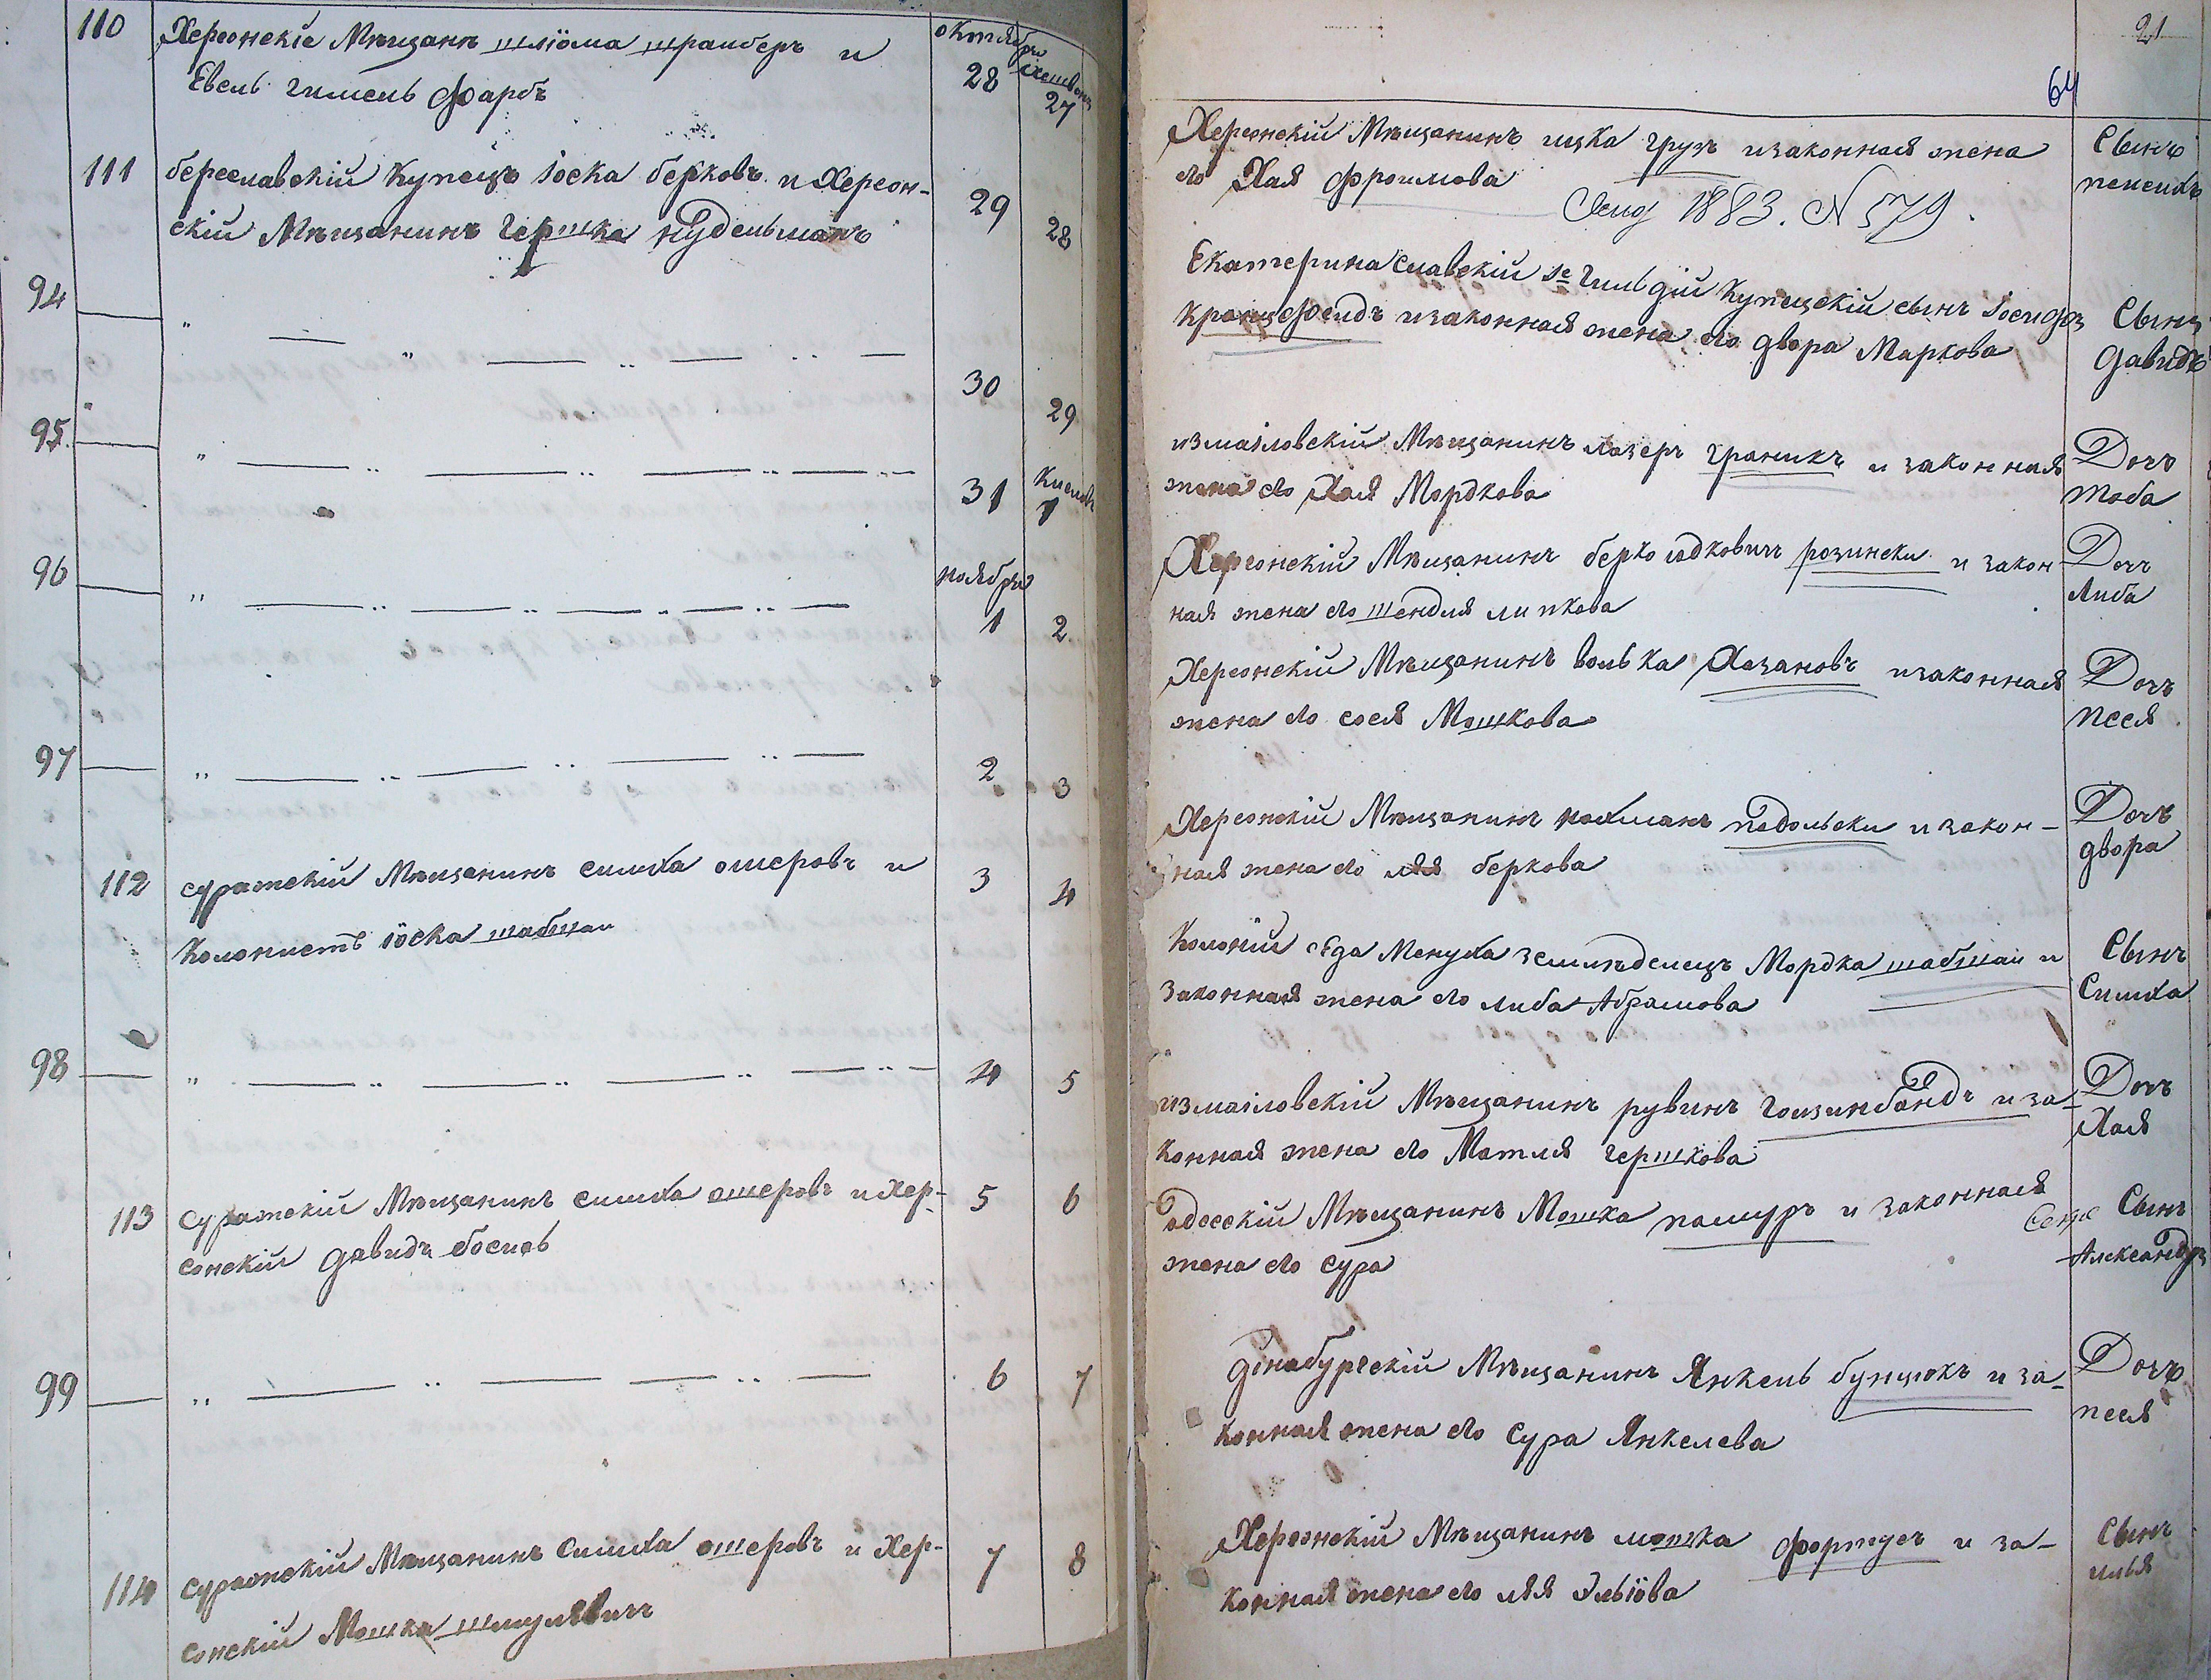 110 Херсонскіе Мѣщане шліома трамберъ и
Евель гимель Фарбъ
октября
28
Хешвонъ
27
111 береславскій Купецъ іоска берковъ и Херсон-
скій Мѣщанинъ Гершка нудельманъ
29 28
94
30 29
95
31
Кислевъ
1
96
ноября
1 2
97
2 3
112 суражскій Мѣщанинъ симха ошеровъ и
Колонистъ іоска шабшаи
3 4
98
4 5
113 суражскій Мѣщанинъ симха ошеровъ и Хер-
сонскій давидъ
5 6
99
6 7
114 суражскій Мѣщанинъ Симха ошеровъ и Хер-
сонскій Мошка шмулевичъ
7 8
21
64
Херсонскій Мѣщанинъ ицка грузъ и законная жена
его Хая фроимова
1883. N 579.
Сынъ
пенсихъ
Екатеринославскій 1е Гильдіи Купецскій сынъ Іосифъ
Кранцфельдъ и законная жена его двора Маркова
Сынъ
давидъ
измаиловскій Мѣщанинъ лазеръ граникъ и законная
жена его Хая Мордкова
Дочь
тоба
Херсонскій Мѣщанинъ берко идковичъ розински и закон-
ная жена его шендля липкова
Дочь
Либа
Херсонскій Мѣщанинъ волька Хазановъ и законная
жена его сося Мошкова
Дочь
песя
Херсонскій Мѣщанинъ нахманъ подольски и закон-
ная жена его лея беркова
Дочь
двора
Колоніи сѣда Менуха земледелецъ Мордка шабшаи и
Законная жена его либа Абрамова
Сынъ
Симха
измаиловскій Мѣщанинъ рувинъ гоизинбандъ и за-
конная жена его Матля гершкова
Дочь
Хая
одесскій Мѣщанинъ Мошка памуръ и законная
жена его сура
Сынъ
Александръ
дінабургскій Мѣщанинъ Янкель бунцюкъ и за-
конная жена его сура Янкелева
Дочь
песя
Херсонскій Мѣщанинъ мошка фортусъ и за-
конная жена его лея Эльіова
Сынъ
илья